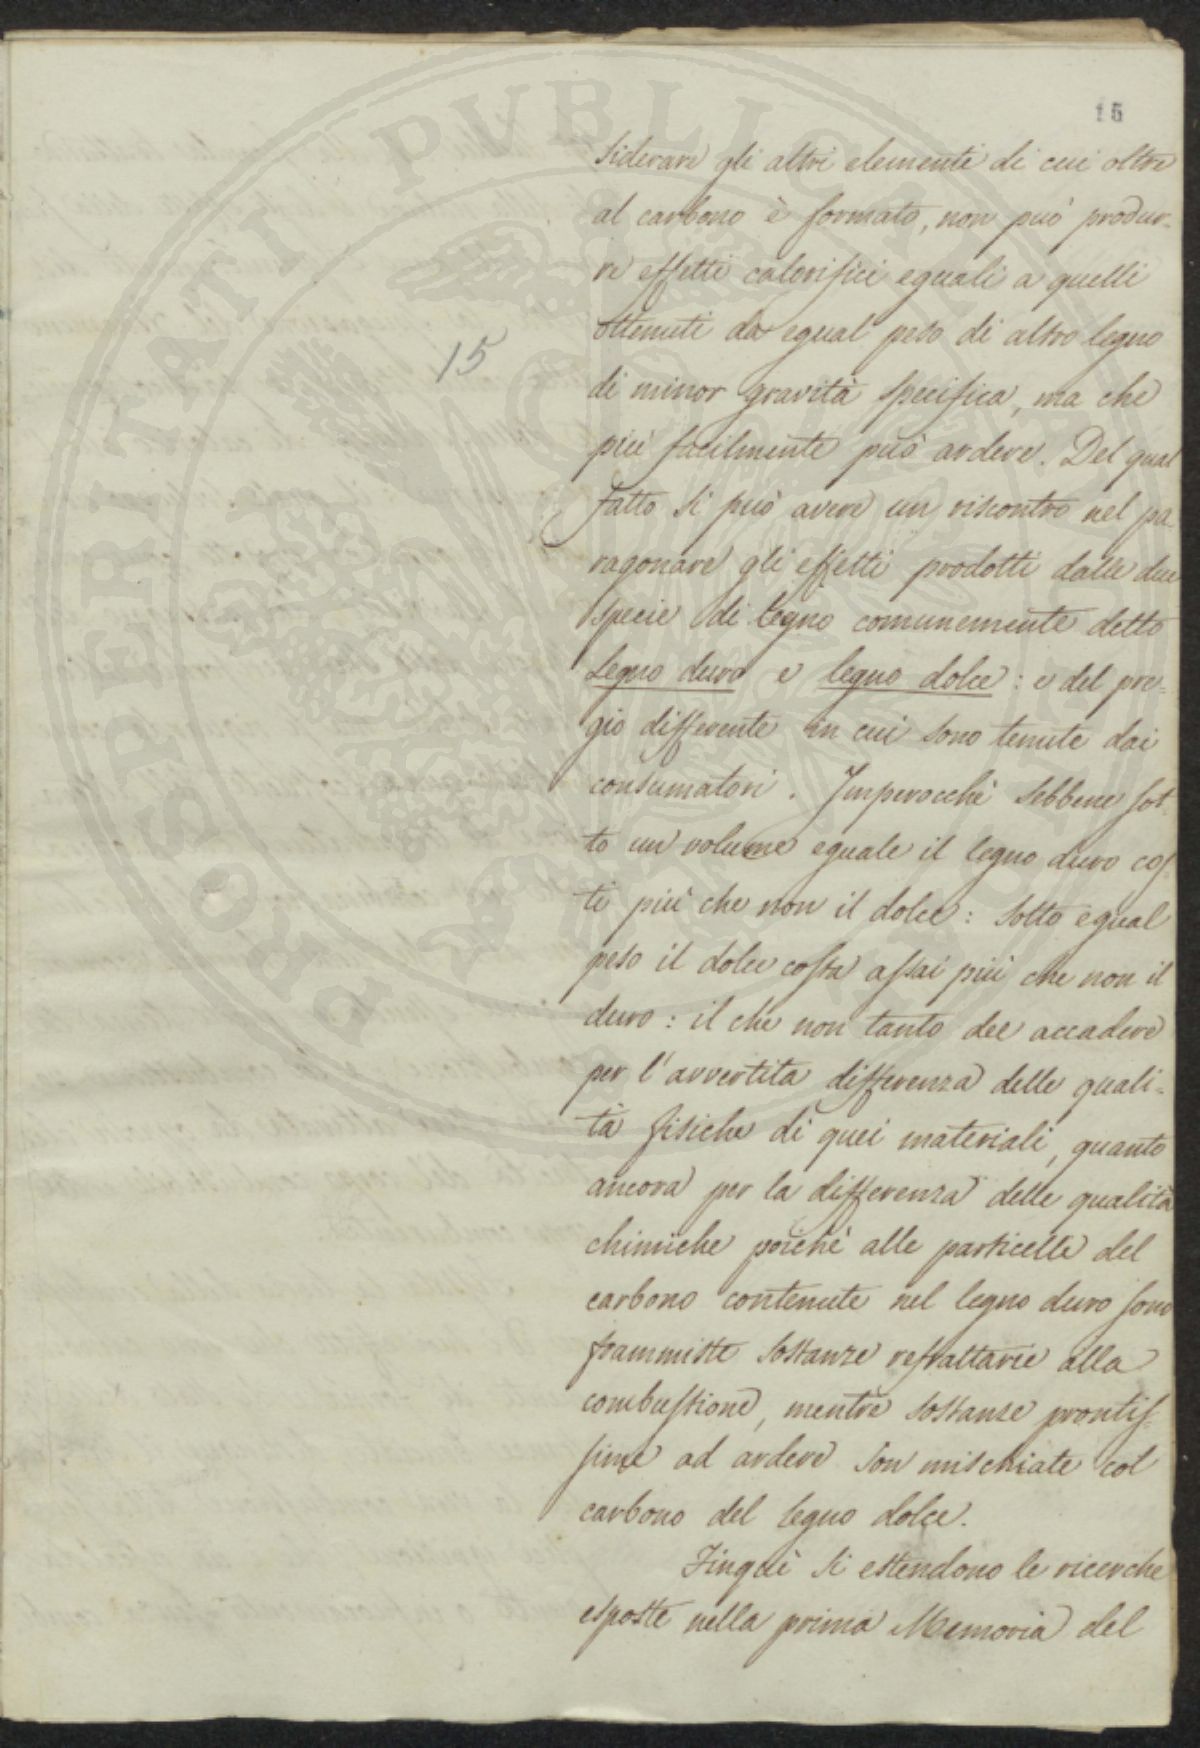 15
siderare gli altri elementi di cui oltre
al carbono è formato, non può produr-
re effetti calorifici eguali a quelli
ottenuti da egual peso di altro legno
15
di minor gravità specifica, ma che
più facilmente può ardere. Del qual
fatto si può avere un riscontro nel pa-
ragonare gli effetti prodotti dalle due
specie di legno comunemente detto
legno duro e legno dolce: e del pre-
gio differente in cui sono tenute dai
consumatori. Imperocchè sebbene sot-
to un volume eguale il legno duro cos-
ti più che non il dolce: sotto egual
peso il dolce costa assai più che non il
duro: il che non tanto dee accadere
per l'avvertita differenza delle quali-
tà fisiche di quei materiali, quanto
ancora per la differenza delle qualità
chimiche poichè alle particelle del
carbono contenute nel legno duro sono
frammiste sostanze refrattarie alla
combustione, mentre sostanze prontis-
sime ad ardere son mischiate col
carbono del legno dolce.
Finquì si estendono le ricerche
esposte nella prima Memoria del
PROSPERITATI PVBLICAE